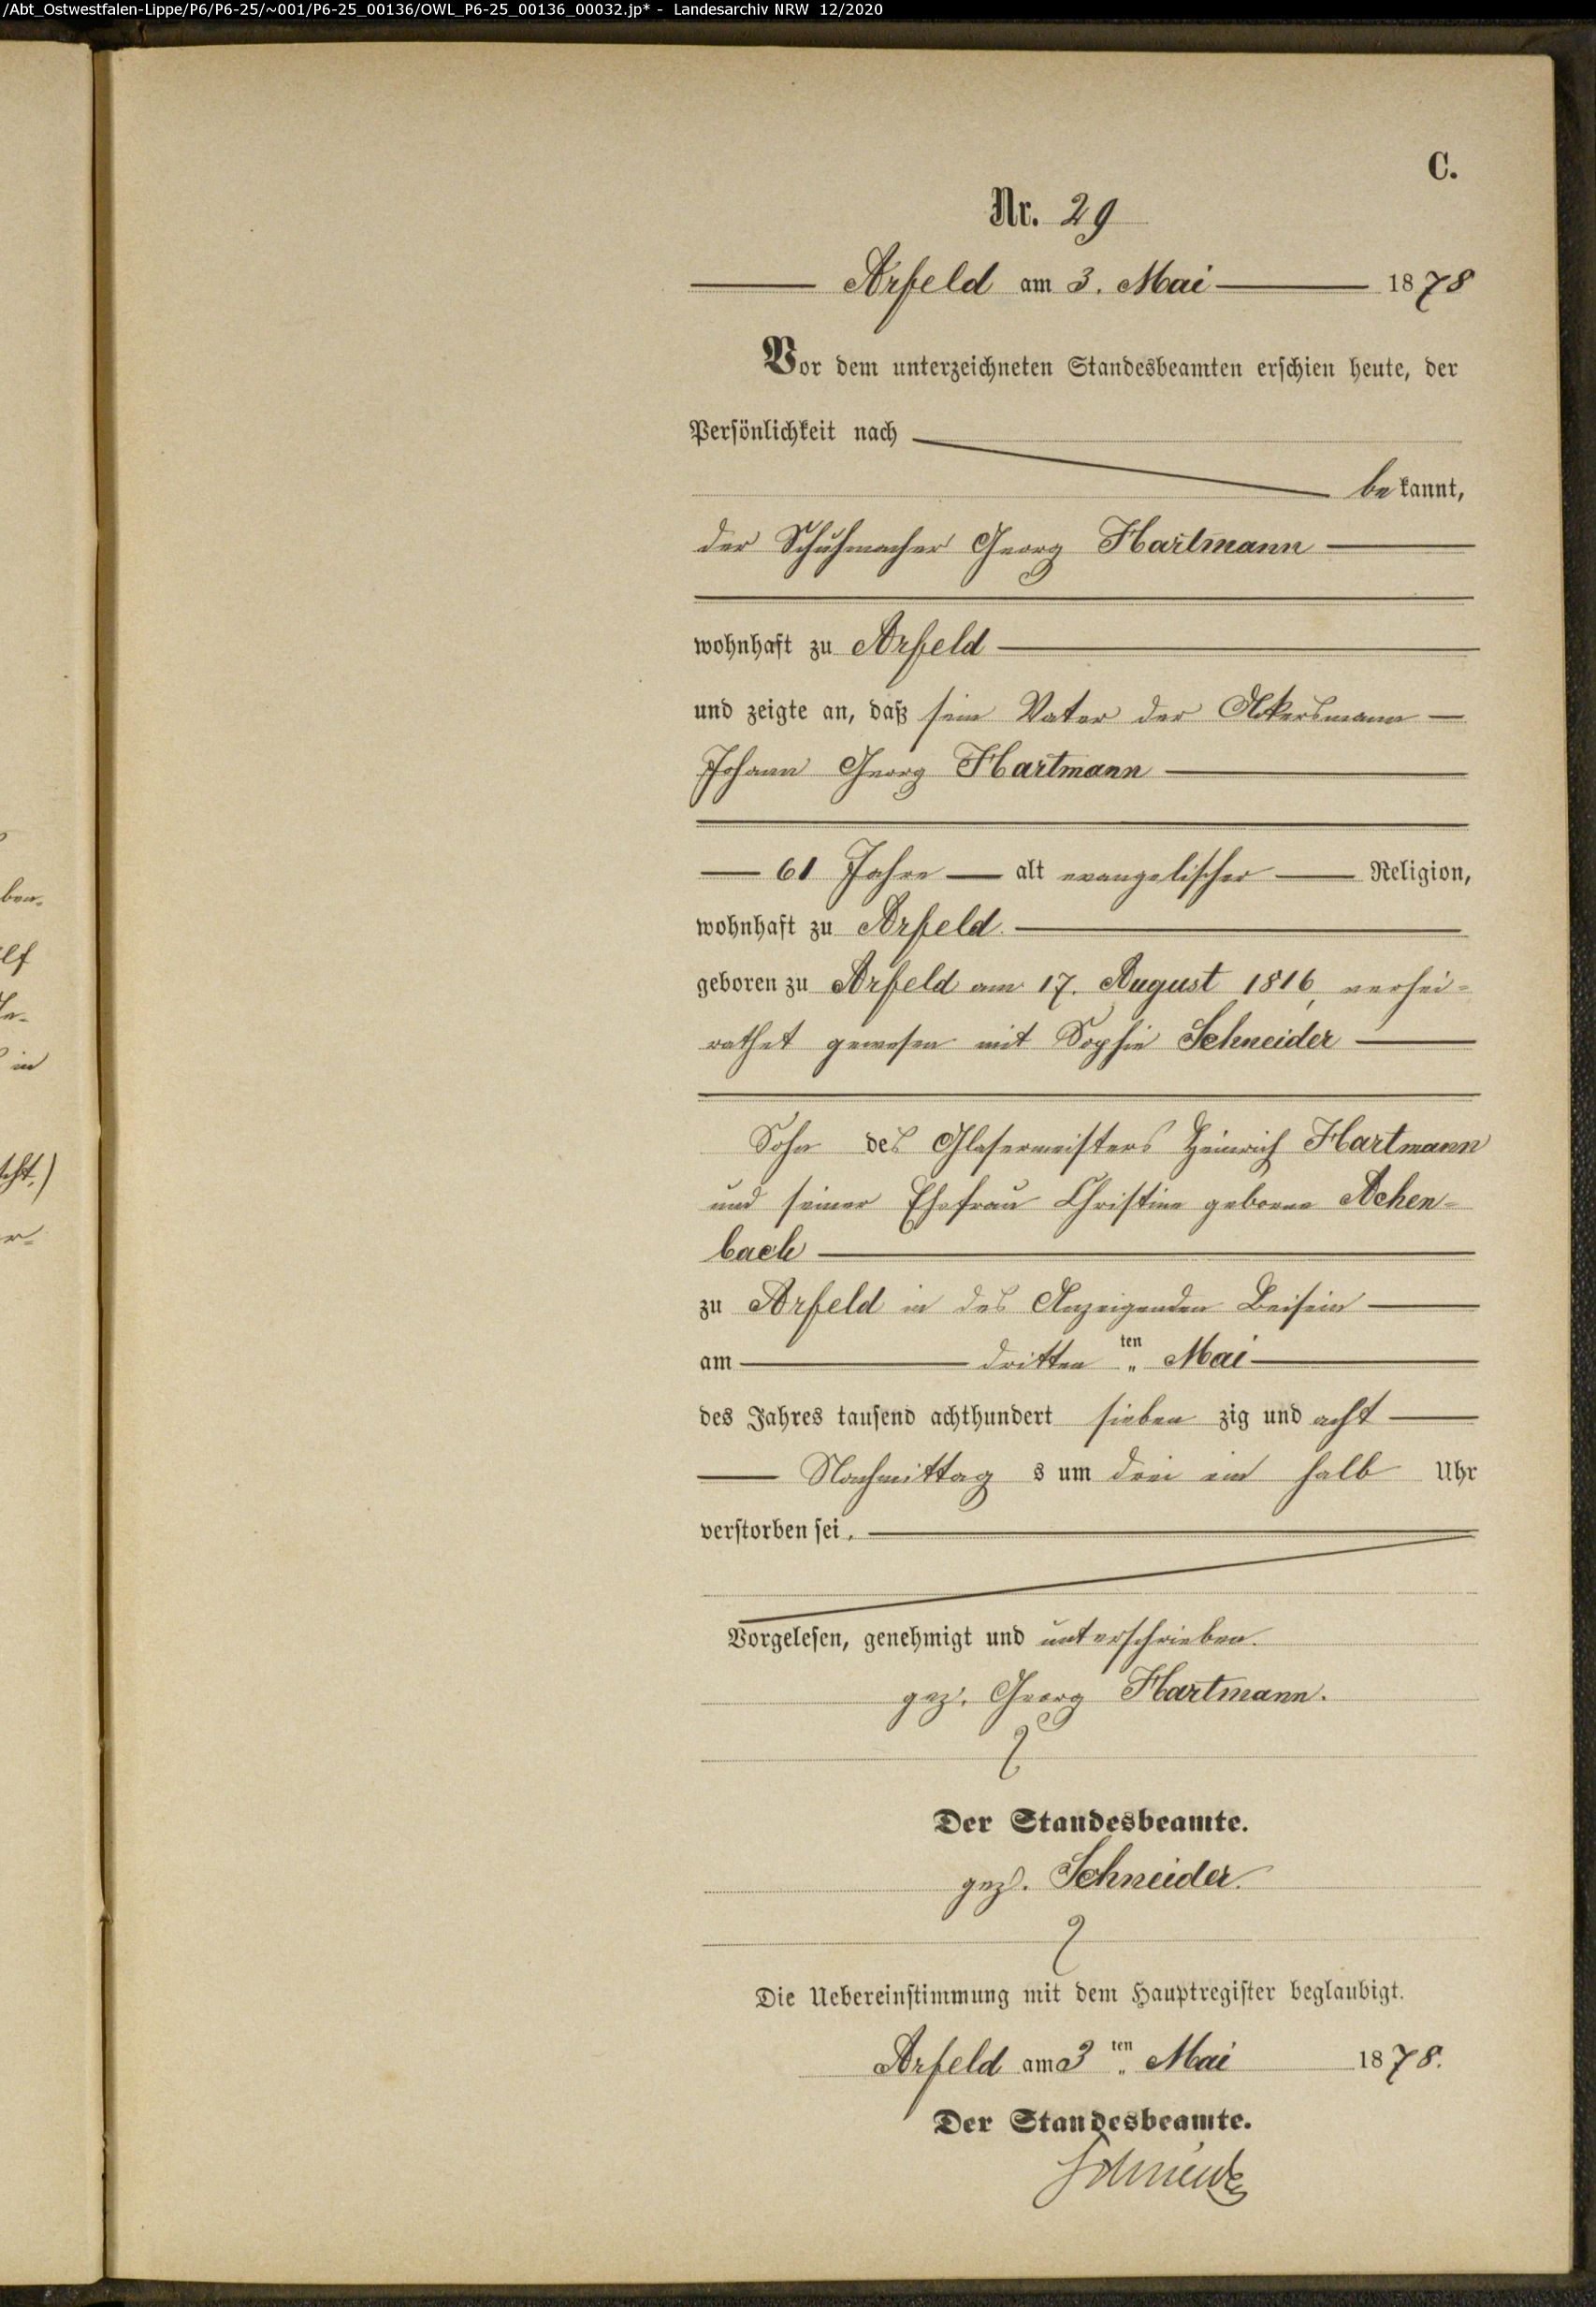 /Abt_Ostwestfalen-Lippe/P6/P6-25/~001/P6-25_00136/OWL_P6-25_00136_00032.jp* - Landesarchiv NRW 12/2020
C.
Nr. 29
Arfeld am 3. Mai 1878
Vor dem unterzeichneten Standesbeamten erschien heute, der
Persönlichkeit nach
bekannt,
der Schuhmacher Georg Hartmann
wohnhaft zu Arfeld
und zeigte an, daß sein Vater der Ackersmann
Johann Georg Hartmann
61 Jahre alt evangelischer Religion,
wohnhaft zu Arfeld
geboren zu Arfeld am 17. August 1816, verhei-
rathet gewesen mit Sophie Schneider
Sohn des Glasermeisters Heinrich Hartmann
und seiner Ehefrau Christine geborne Achen-
bach
zu Arfeld in des Anzeigenden Beisein
am dritten ten Mai
des Jahres tausend achthundert siebenzig und acht
Nachmittags um drei ein halb Uhr
verstorben sei.
Vorgelesen, genehmigt und unterschrieben.
gez. Georg Hartmann.
Der Standesbeamte.
gez. Schneider.
Die Uebereinstimmung mit dem Hauptregister beglaubigt.
Arfeld am 3ten Mai 1878.
Der Standesbeamte.
Schneider
ben.
lf
in
cht.)